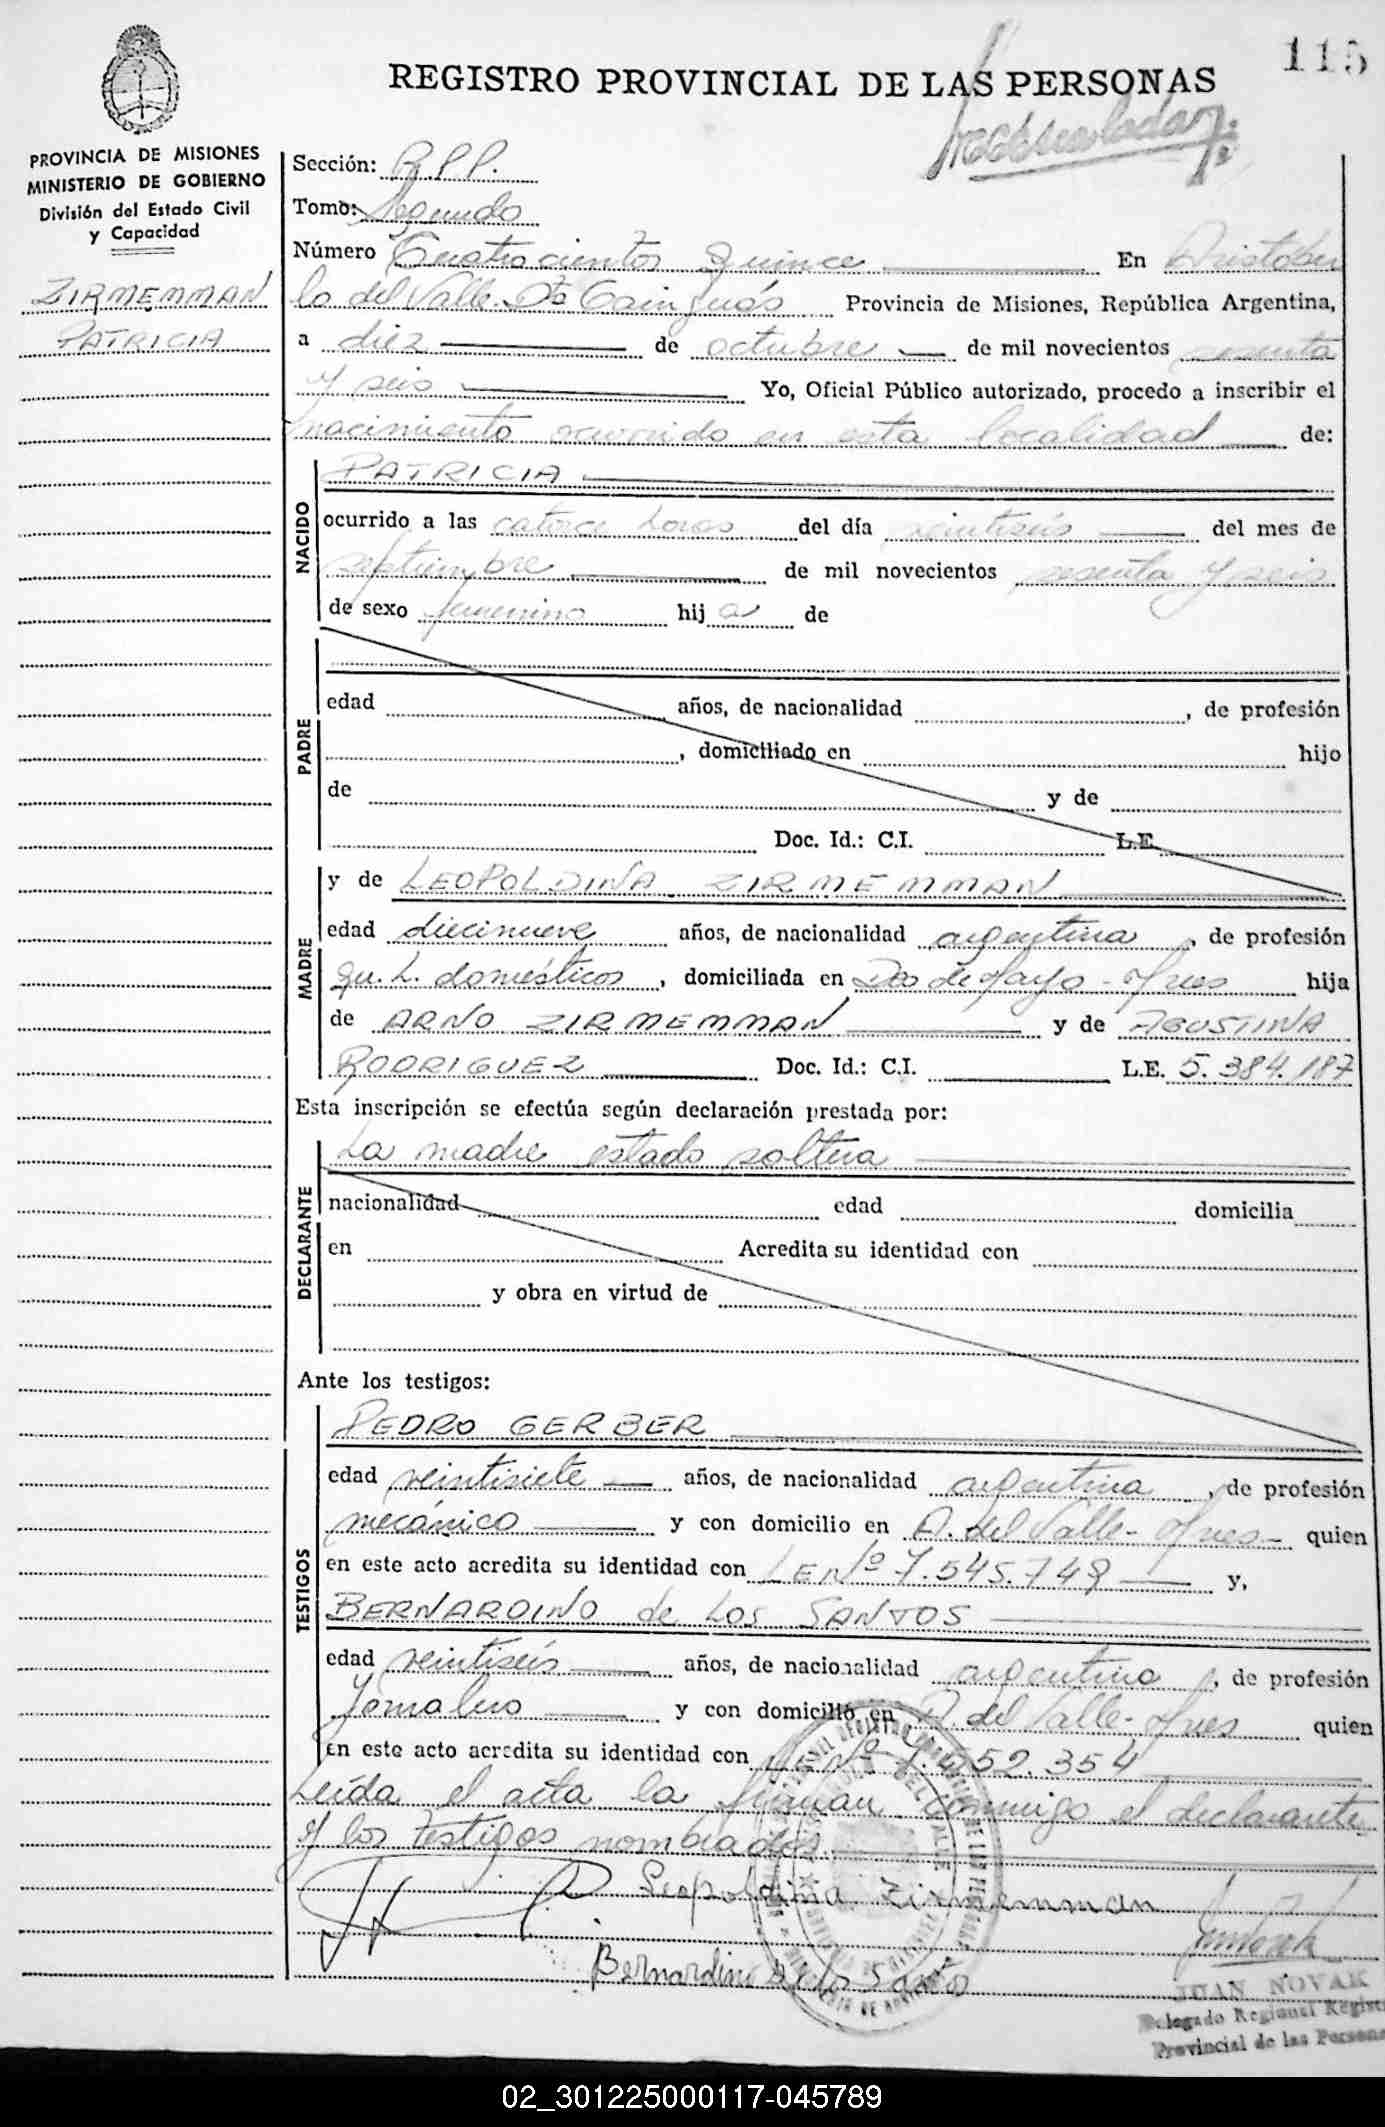 115
REGISTRO PROVINCIAL DE LAS PERSONAS
PROVINCIA DE MISIONES
MINISTERIO DE GOBIERNO
División del Estado Civil
y Capacidad
ZIRMEMMAN
PATRICIA
Sección: R.P.P.
Tomo: Segundo
Número Cuatrocientos Quince En Aristóbu
lo del Valle Dto Cainguás Provincia de Misiones, República Argentina,
a diez de octubre de mil novecientos sesenta
y seis Yo, Oficial Público autorizado, procedo a inscribir el
nacimiento ocurrido en esta localidad de:
NACIDO
PATRICIA
ocurrido a las catorce horas del día veintiseis del mes de
septiembre de mil novecientos sesenta y seis
de sexo femenino hij a de
PADRE
edad años, de nacionalidad , de profesión
, domiciliado en hijo
de y de
Doc. Id.: C.I. L.E.
MADRE
y de LEOPOLDINA ZIRMEMMAN
edad diecinueve años, de nacionalidad argentina , de profesión
qu. L. domésticos , domiciliada en Dos de Mayo - Mnes hija
de ARNO ZIRMEMMAN y de AGUSTINA
RODRIGUEZ Doc. Id.: C.I. L.E. 5.384.187
Esta inscripción se efectúa según declaración prestada por:
DECLARANTE
La madre estado soltera
nacionalidad edad domicilia
en Acredita su identidad con
y obra en virtud de
Ante los testigos:
TESTIGOS
PEDRO GERBER
edad veintisiete años, de nacionalidad argentina , de profesión
mecánico y con domicilio en A. del Valle - Mnes - quien
en este acto acredita su identidad con LE Nº 7.545.749 y,
BERNARDINO de LOS SANTOS
edad veintiseis años, de nacionalidad argentina , de profesión
Jornalero y con domicilio en A. del Valle - Mnes quien
en este acto acredita su identidad con LE Nº 52.354
Leída el acta la firman conmigo el declarante
y los testigos nombrados.
Leopoldina Zirmemman
Bernardino de los Santos
JUAN NOVAK
Delegado Regional Registro
Provincial de las Persona
02_301225000117-045789